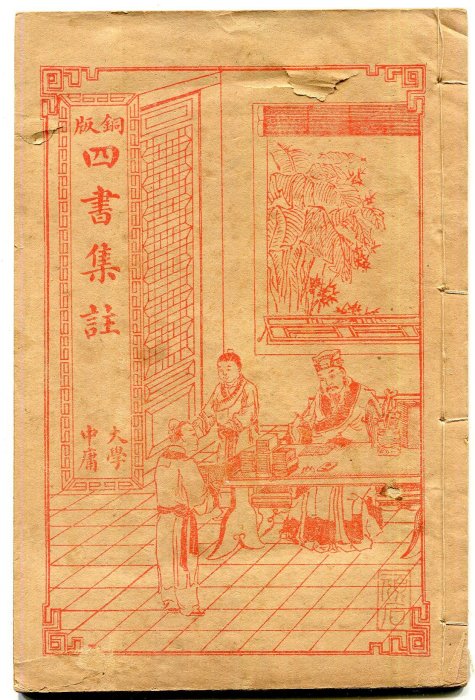 銅版
四書集註
大學
中庸